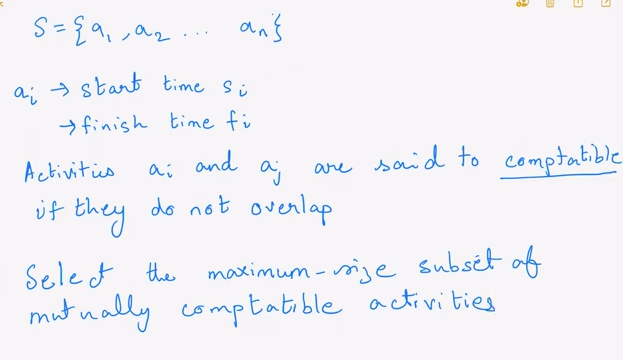 S = {a₁, a₂ ... aₙ}
aᵢ → start time sᵢ
→ finish time fᵢ
Activities aᵢ and aⱼ are said to comptatible
if they do not overlap
Select the maximum-size subset of
mutually comptatible activities